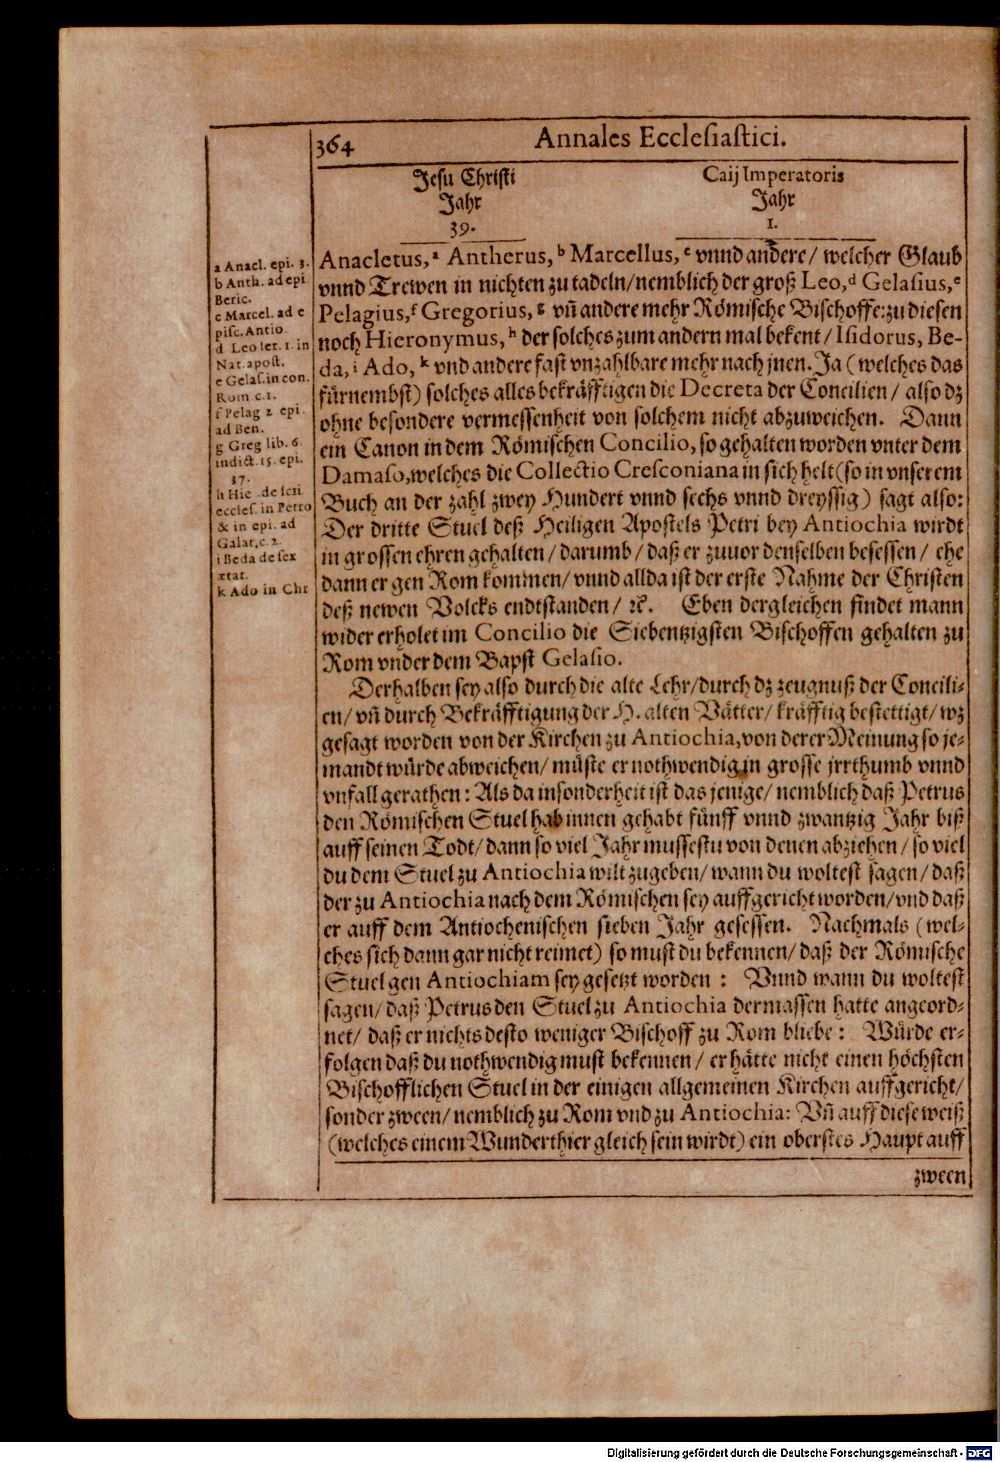 364
Annales Ecclesiastici.
Jesu Christi
Jahr
39.
Caij Imperatoris
Jahr
1.
a Anacl. epi. 3.
b Anth. ad epi
Betic.
c Marcel. ad e
pisc. Antio.
d Leo ser. 1. in
Nat. apost.
e Gelas. in con.
Rom c. 1.
f Pelag 2 epi.
ad Ben.
g Greg lib. 6.
indict. 15. epi.
37.
h Hie. de scri
eccles. in Petro
& in epi. ad
Galat, c. 2.
i Beda de sex
ætat.
k Ado in Chr
Anacletus, a Antherus, b Marcellus, c vnnd andere/ welcher Glaub
vnnd Trewen in nichten zu tadeln/ nemblich der groß Leo, d Gelasius, e
Pelagius, f Gregorius, g vñ andere mehr Römische Bischoffe: zu diesen
noch Hieronymus, h der solches zum andern mal bekent/ Isidorus, Be-
da, i Ado, k vnd andere fast vnzahlbare mehr nach jnen. Ja (welches das
fürnembst) solches alles bekräfftigen die Decreta der Concilien/ also dz
ohne besondere vermessenheit von solchem nicht abzuweichen. Dann
ein Canon in dem Römischen Concilio, so gehalten worden vnter dem
Damaso, welches die Collectio Cresconiana in sich helt (so in vnserem
Buch an der zahl zwey Hundert vnnd sechs vnnd dreyssig) sagt also:
Der dritte Stuel deß Heiligen Apostels Petri bey Antiochia wirdt
in grossen ehren gehalten/ darumb/ daß er zuuor denselben besessen/ ehe
dann er gen Rom kommen/ vnnd allda ist der erste Nahme der Christen
deß newen Volcks endtstanden/ ꝛc. Eben dergleichen findet mann
wider erholet im Concilio die Siebentzigsten Bischoffen gehalten zu
Rom vnder dem Bapst Gelasio.
Derhalben sey also durch die alte Lehr/ durch dz zeugnuß der Concili-
en/ vñ durch Bekräfftigung der H. alten Vätter/ kräfftig bestettigt/ wz
gesagt worden von der Kirchen zu Antiochia, von derer Meinung so je-
mandt würde abweichen/ müste er nothwendig in grosse jrrthumb vnnd
vnfall gerathen: Als da insonderheit ist das jenige/ nemblich daß Petrus
den Römischen Stuel hab innen gehabt fünff vnnd zwantzig Jahr biß
auff seinen Todt/ dann so viel Jahr mussestu von denen abziehen/ so viel
du dem Stuel zu Antiochia wilt zugeben/ wann du woltest sagen/ daß
der zu Antiochia nach dem Römischen sey auffgericht worden/ vnd daß
er auff dem Antiochenischen sieben Jahr gesessen. Nachmals (wel-
ches sich dann gar nicht reimet) so must du bekennen/ daß der Römische
Stuel gen Antiochiam sey gesetzt worden: Vnnd wann du woltest
sagen/ daß Petrus den Stuel zu Antiochia dermassen hatte angeord-
net/ daß er nichts desto weniger Bischoff zu Rom bliebe: Würde er-
folgen daß du nothwendig must bekennen/ er hätte nicht einen höchsten
Bischofflichen Stuel in der einigen allgemeinen Kirchen auffgericht/
sonder zween/ nemblich zu Rom vnd zu Antiochia: Vñ auff diese weiß
(welches einem Wunderthier gleich sein wirdt) ein oberstes Haupt auff
zween
Digitalisierung gefördert durch die Deutsche Forschungsgemeinschaft - DFG